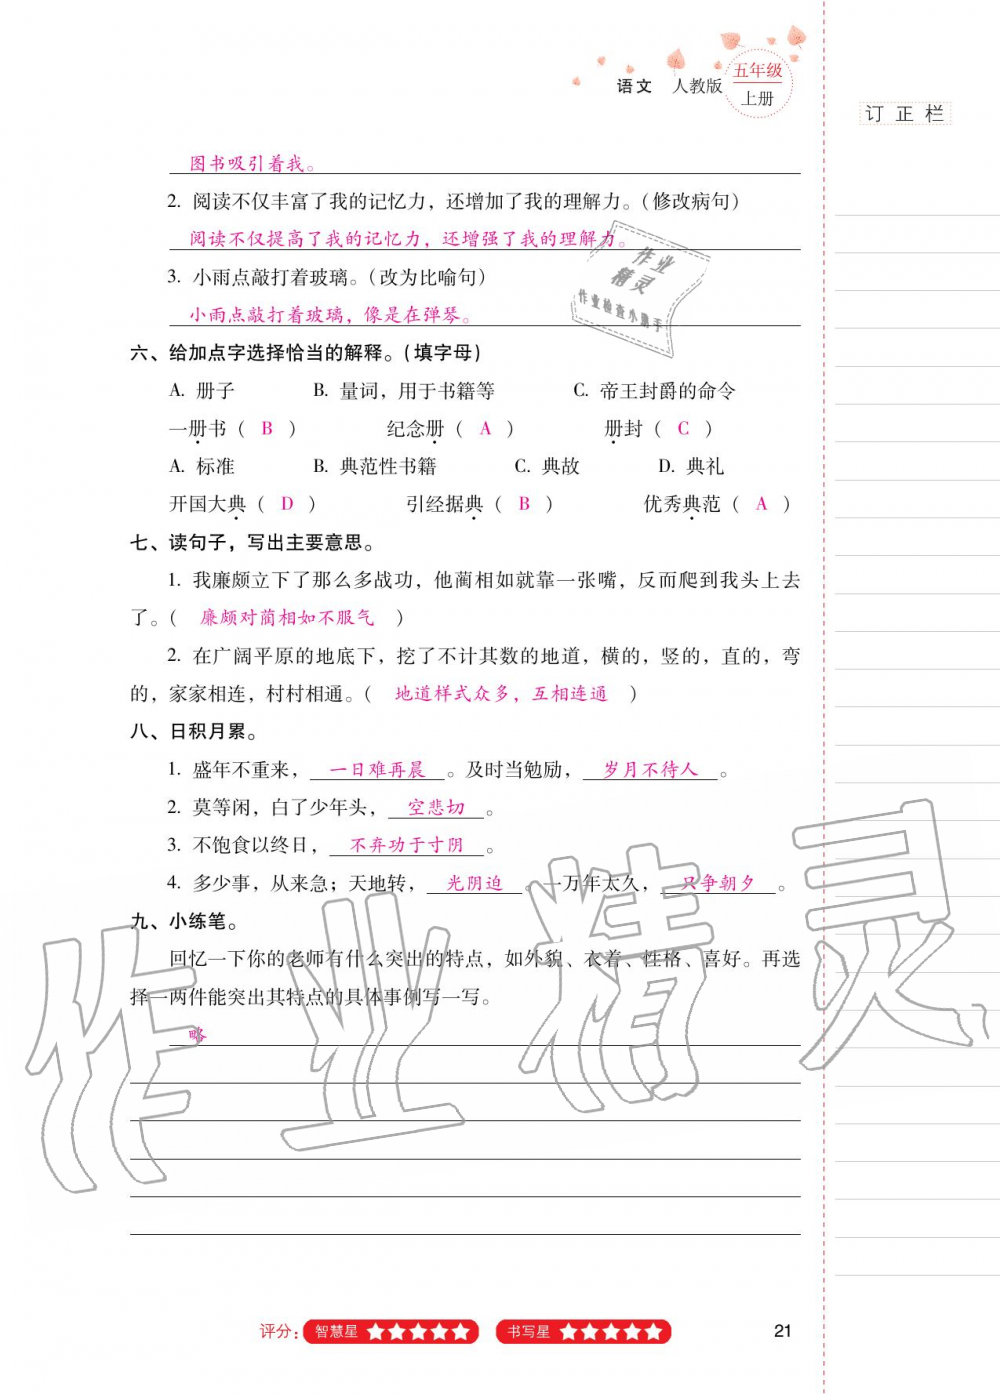 语文 人教版 五年级
上册
订正栏
图书吸引着我。
2. 阅读不仅丰富了我的记忆力，还增加了我的理解力。（修改病句）
阅读不仅提高了我的记忆力，还增强了我的理解力。
3. 小雨点敲打着玻璃。（改为比喻句）
小雨点敲打着玻璃，像是在弹琴。
作业
精灵
作业检查小助手
六、给加点字选择恰当的解释。（填字母）
A. 册子 B. 量词，用于书籍等 C. 帝王封爵的命令
一册书（ B ） 纪念册（ A ） 册封（ C ）
A. 标准 B. 典范性书籍 C. 典故 D. 典礼
开国大典（ D ） 引经据典（ B ） 优秀典范（ A ）
七、读句子，写出主要意思。
1. 我廉颇立下了那么多战功，他蔺相如就靠一张嘴，反而爬到我头上去
了。（ 廉颇对蔺相如不服气 ）
2. 在广阔平原的地底下，挖了不计其数的地道，横的，竖的，直的，弯
的，家家相连，村村相通。（ 地道样式众多，互相连通 ）
八、日积月累。
1. 盛年不重来，一日难再晨。及时当勉励，岁月不待人。
2. 莫等闲，白了少年头，空悲切。
3. 不饱食以终日，不弃功于寸阴。
4. 多少事，从来急；天地转，光阴迫。一万年太久，只争朝夕。
九、小练笔。
回忆一下你的老师有什么突出的特点，如外貌、衣着、性格、喜好。再选
择一两件能突出其特点的具体事例写一写。
略
作业精灵
评分：智慧星 书写星
21